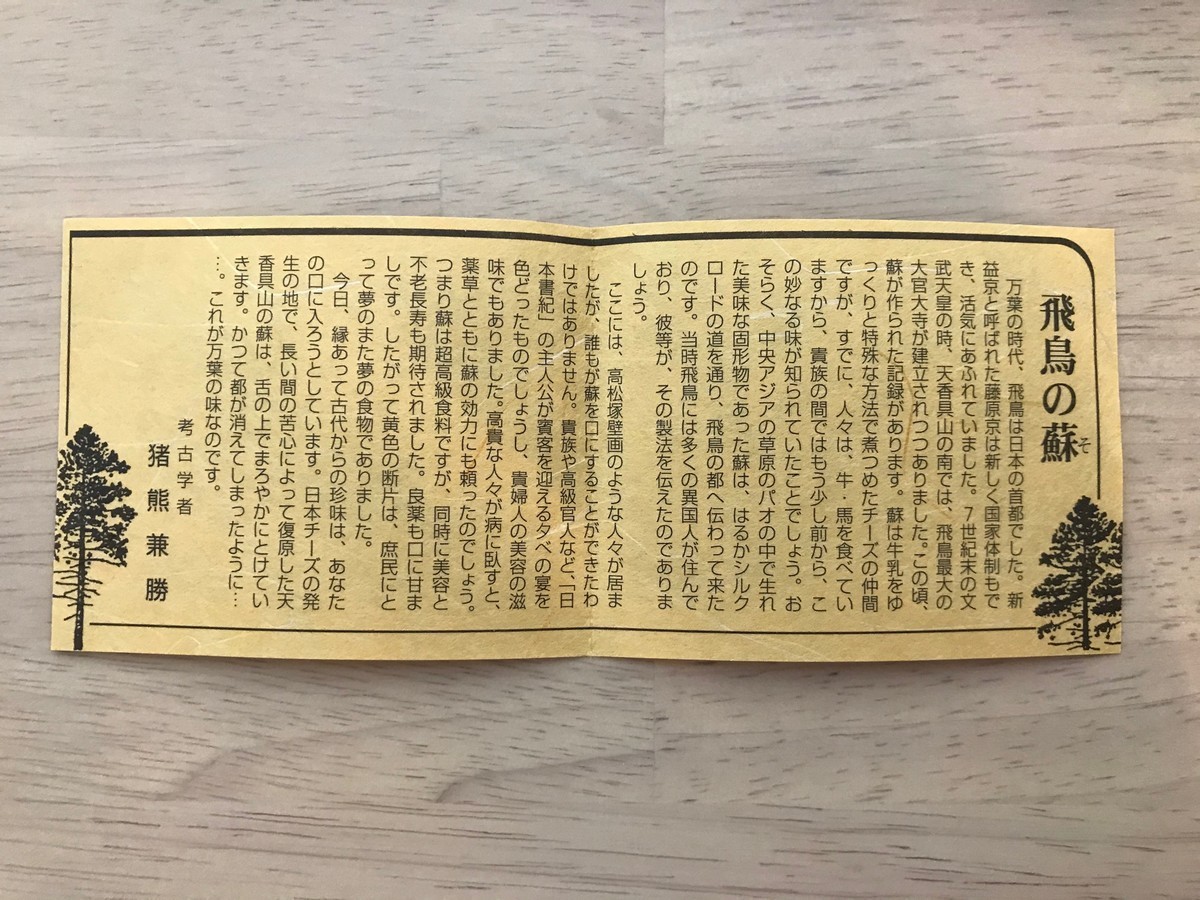 飛鳥の蘇
そ
万葉の時代、飛鳥は日本の首都でした。新
益京と呼ばれた藤原京は新しく国家体制もで
き、活気にあふれていました。7世紀末の文
武天皇の時、天香具山の南では、飛鳥最大の
大官大寺が建立されつつありました。この頃、
蘇が作られた記録があります。蘇は牛乳をゆ
っくりと特殊な方法で煮つめたチーズの仲間
ですが、すでに、人々は、牛・馬を食べてい
ますから、貴族の間ではもう少し前から、こ
の妙なる味が知られていたことでしょう。お
そらく、中央アジアの草原のパオの中で生れ
た美味な固形物であった蘇は、はるかシルク
ロードの道を通り、飛鳥の都へ伝わって来た
のです。当時飛鳥には多くの異国人が住んで
おり、彼等が、その製法を伝えたのでありま
しょう。
ここには、高松塚壁画のような人々が居ま
したが、誰もが蘇を口にすることができたわ
けではありません。貴族や高級官人など、「日
本書紀」の主人公が賓客を迎える夕べの宴を
色どったものでしょうし、貴婦人の美容の滋
味でもありました。高貴な人々が病に臥すと、
薬草とともに蘇の効力にも頼ったのでしょう。
つまり蘇は超高級食料ですが、同時に美容と
不老長寿も期待されました。良薬も口に甘ま
しです。したがって黄色の断片は、庶民にと
って夢のまた夢の食物でありました。
今日、縁あって古代からの珍味は、あなた
の口に入ろうとしています。日本チーズの発
生の地で、長い間の苦心によって復原した天
香具山の蘇は、舌の上でまろやかにとけてい
きます。かつて都が消えてしまったように…
…。これが万葉の味なのです。
考古学者
猪熊兼勝